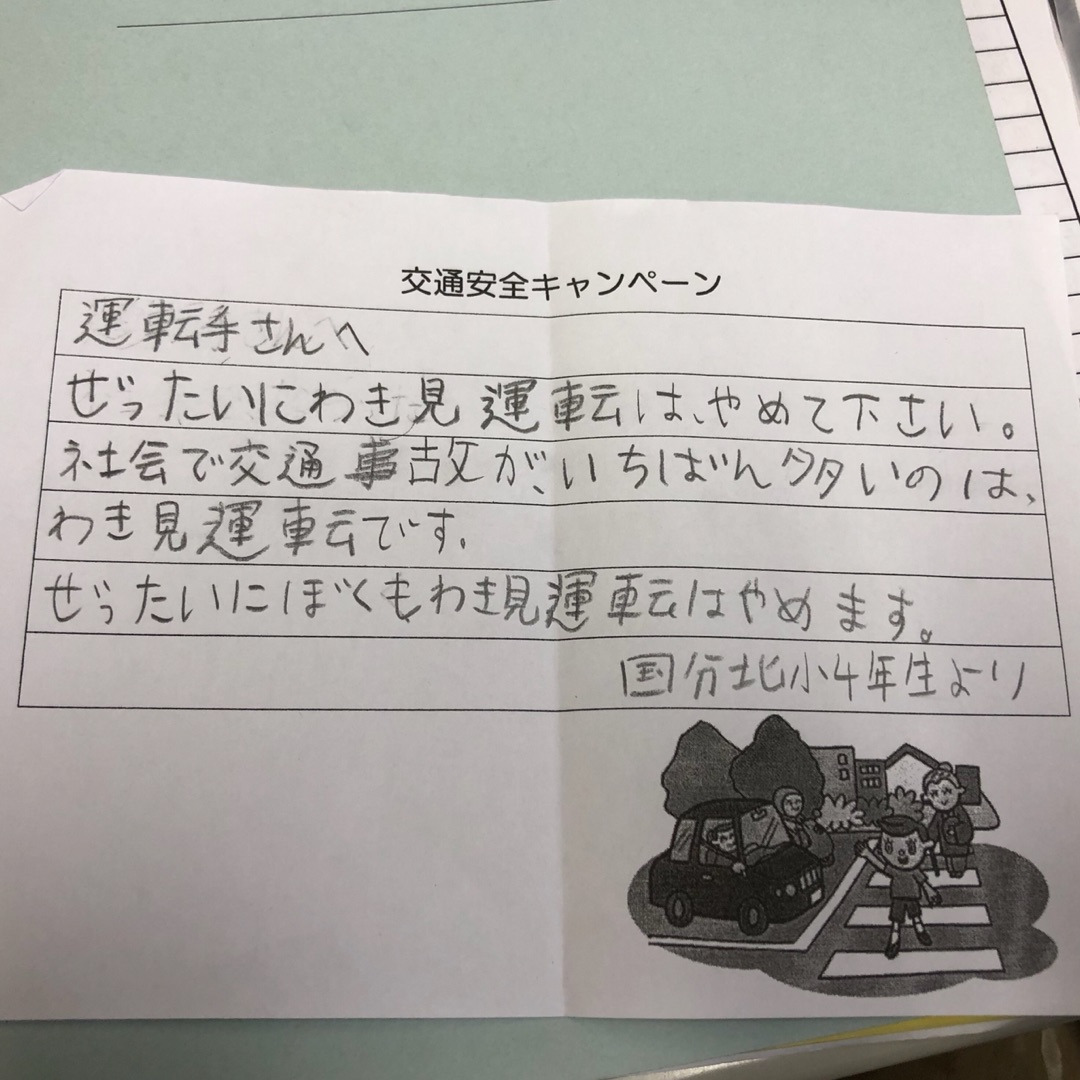 交通安全キャンペーン
運転手さんへ
ぜったいにわき見運転は、やめて下さい。
社会で交通事故が、いちばん多いのは、
わき見運転です。
ぜったいにぼくもわき見運転はやめます。
国分北小4年生より